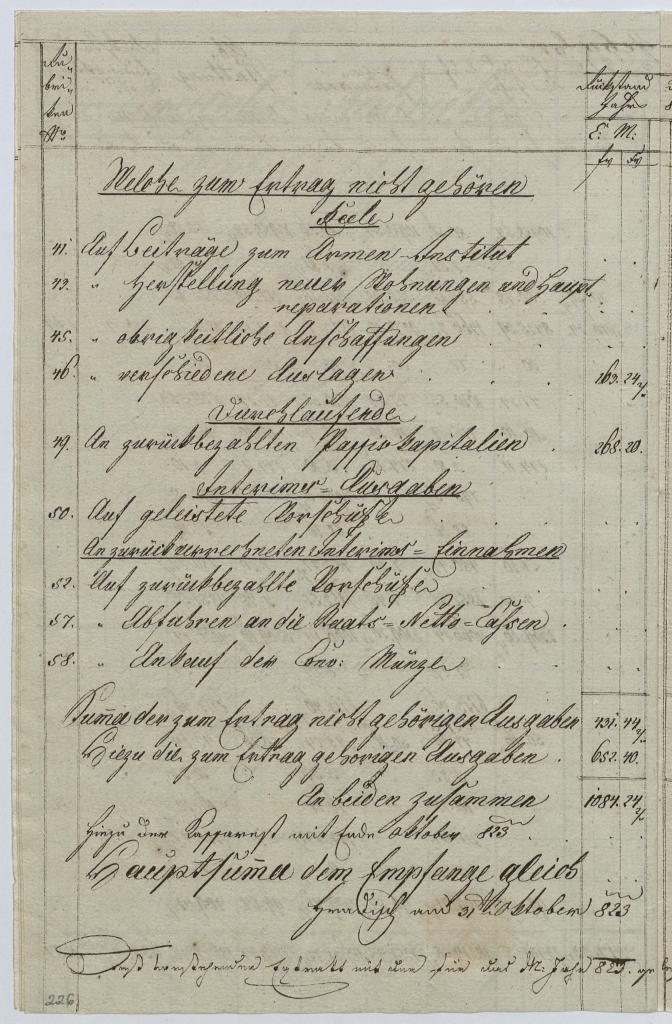 Ru-
bri-
ken
No
Rükstand
Jahr
C: M:
fr xr
Welche zum Ertrag nicht gehören
Reele
41. Auf Beiträge zum Armen-Institut
43. " Herstellung neuer Wohnungen und Haupt-
reparationen
45. " obrigkeitliche Anschaffungen
46. " verschiedene Auslagen 163. 24 2/
Durchlaufende
49. An zurückbezahlten Passiv Kapitalien 268. 20.
Interims=Ausgaben
50. Auf geleistete Vorschüße
An zurückverrechneten Interims=Einnahmen
52. Auf zurückbezahlte Vorschüße
57. " Abfuhren an die Staats=Netto=Cassen
58. " Ankauf der Conv: Münze
Summa der zum Ertrag nicht gehörigen Ausgaben 431. 44 2/
Hiezu die zum Ertrag gehörigen Ausgaben 652. 40.
An beiden zusammen 1084. 24 2/
Hiezu der Kassarest mit Ende Oktober 823
Hauptsumma dem Empfange gleich
Hradisch am 31t Oktober 823
vorstehender Extrakt mit der für das M: Jahr 823.
226